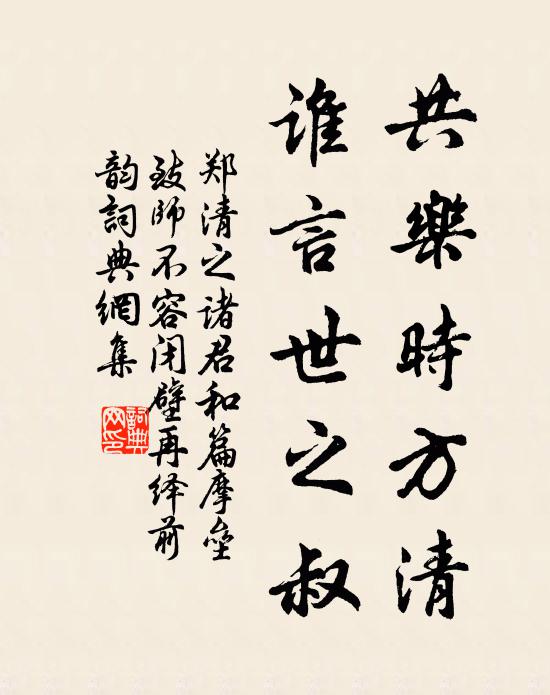 共樂時方清
誰言世之叔
郑清之諸君和篇摩壘
致師不容闭壁再绎前
韵詞典網集
詞典
网印